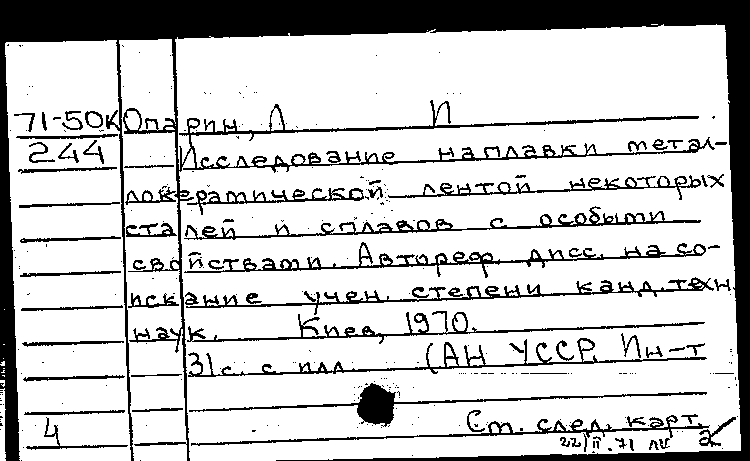 71-50К Опарин, Л И
244 Исследование наплавки метал-
локерамической лентой некоторых
сталей и сплавов с особыми
свойствами. Автореф. дисс. на со-
искание учен. степени канд. техн.
наук. Киев, 1970.
31 с. с илл. (АН УССР. Ин-т
4 См. след. карт.
22/II.71 2